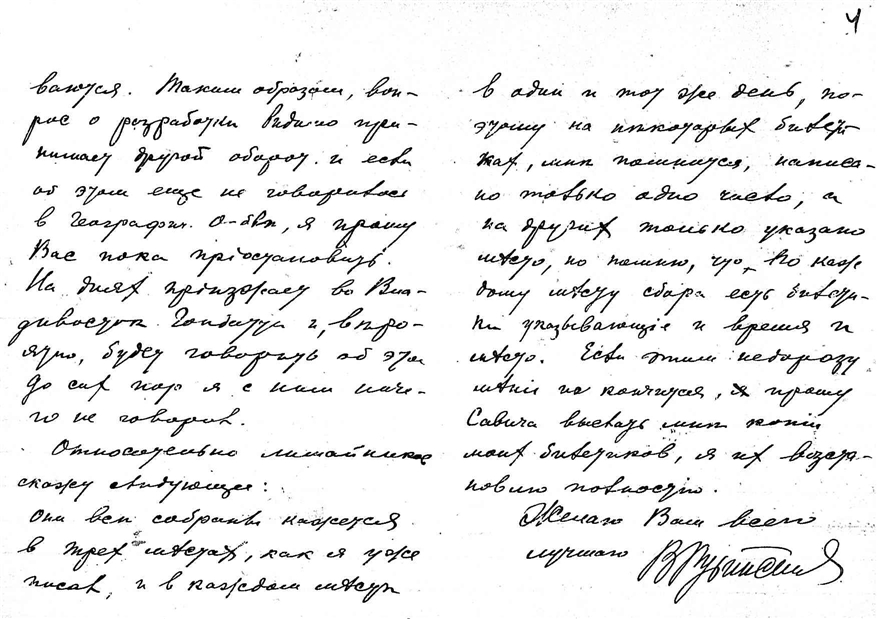 4
ваются. Таким образом, воп-
рос о разработки видимо при-
нимает другой оборот. и если
об этом еще не говорилось
в Географич. О-вѣ, я прошу
Вас пока пріостановить.
На днях пріѣзжает во Вла-
дивосток Гондатти и, вѣро-
ятно, будет говорить об этом
До сих пор я с ним ниче-
го не говорил.
Относительно лишайников
скажу слѣдующее:
они всѣ собраны кажется
в трех мѣстах, как я уже
писал, и в каждом мѣстѣ
в один и тот же день, по-
этому на нѣкоторых билети-
ках, мнѣ помнится, написа-
но только одно число, а
на других только указано
мѣсто, но помню, что по каж
дому мѣсту сбора есть билети-
ки указывающіе и время и
мѣсто. Если этим недоразу
мѣніе не кончится, я прошу
Савича выслать мнѣ копіи
моих билетиков, я их возста-
новлю полностью.
Желаю Вам всего
лучшаго